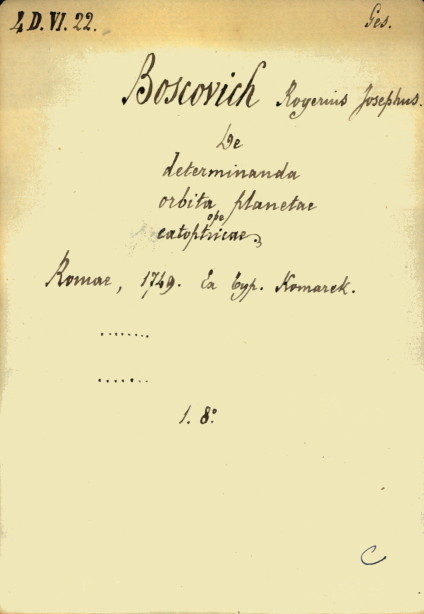 4 D. VI. 22.
Ges.
Boscovich Rogerius Josephus.
De
determinanda
orbita planetae
ope
catoptricae
Romae, 1749. Ex typ. Komarek.
........
.......
1. 8°
C